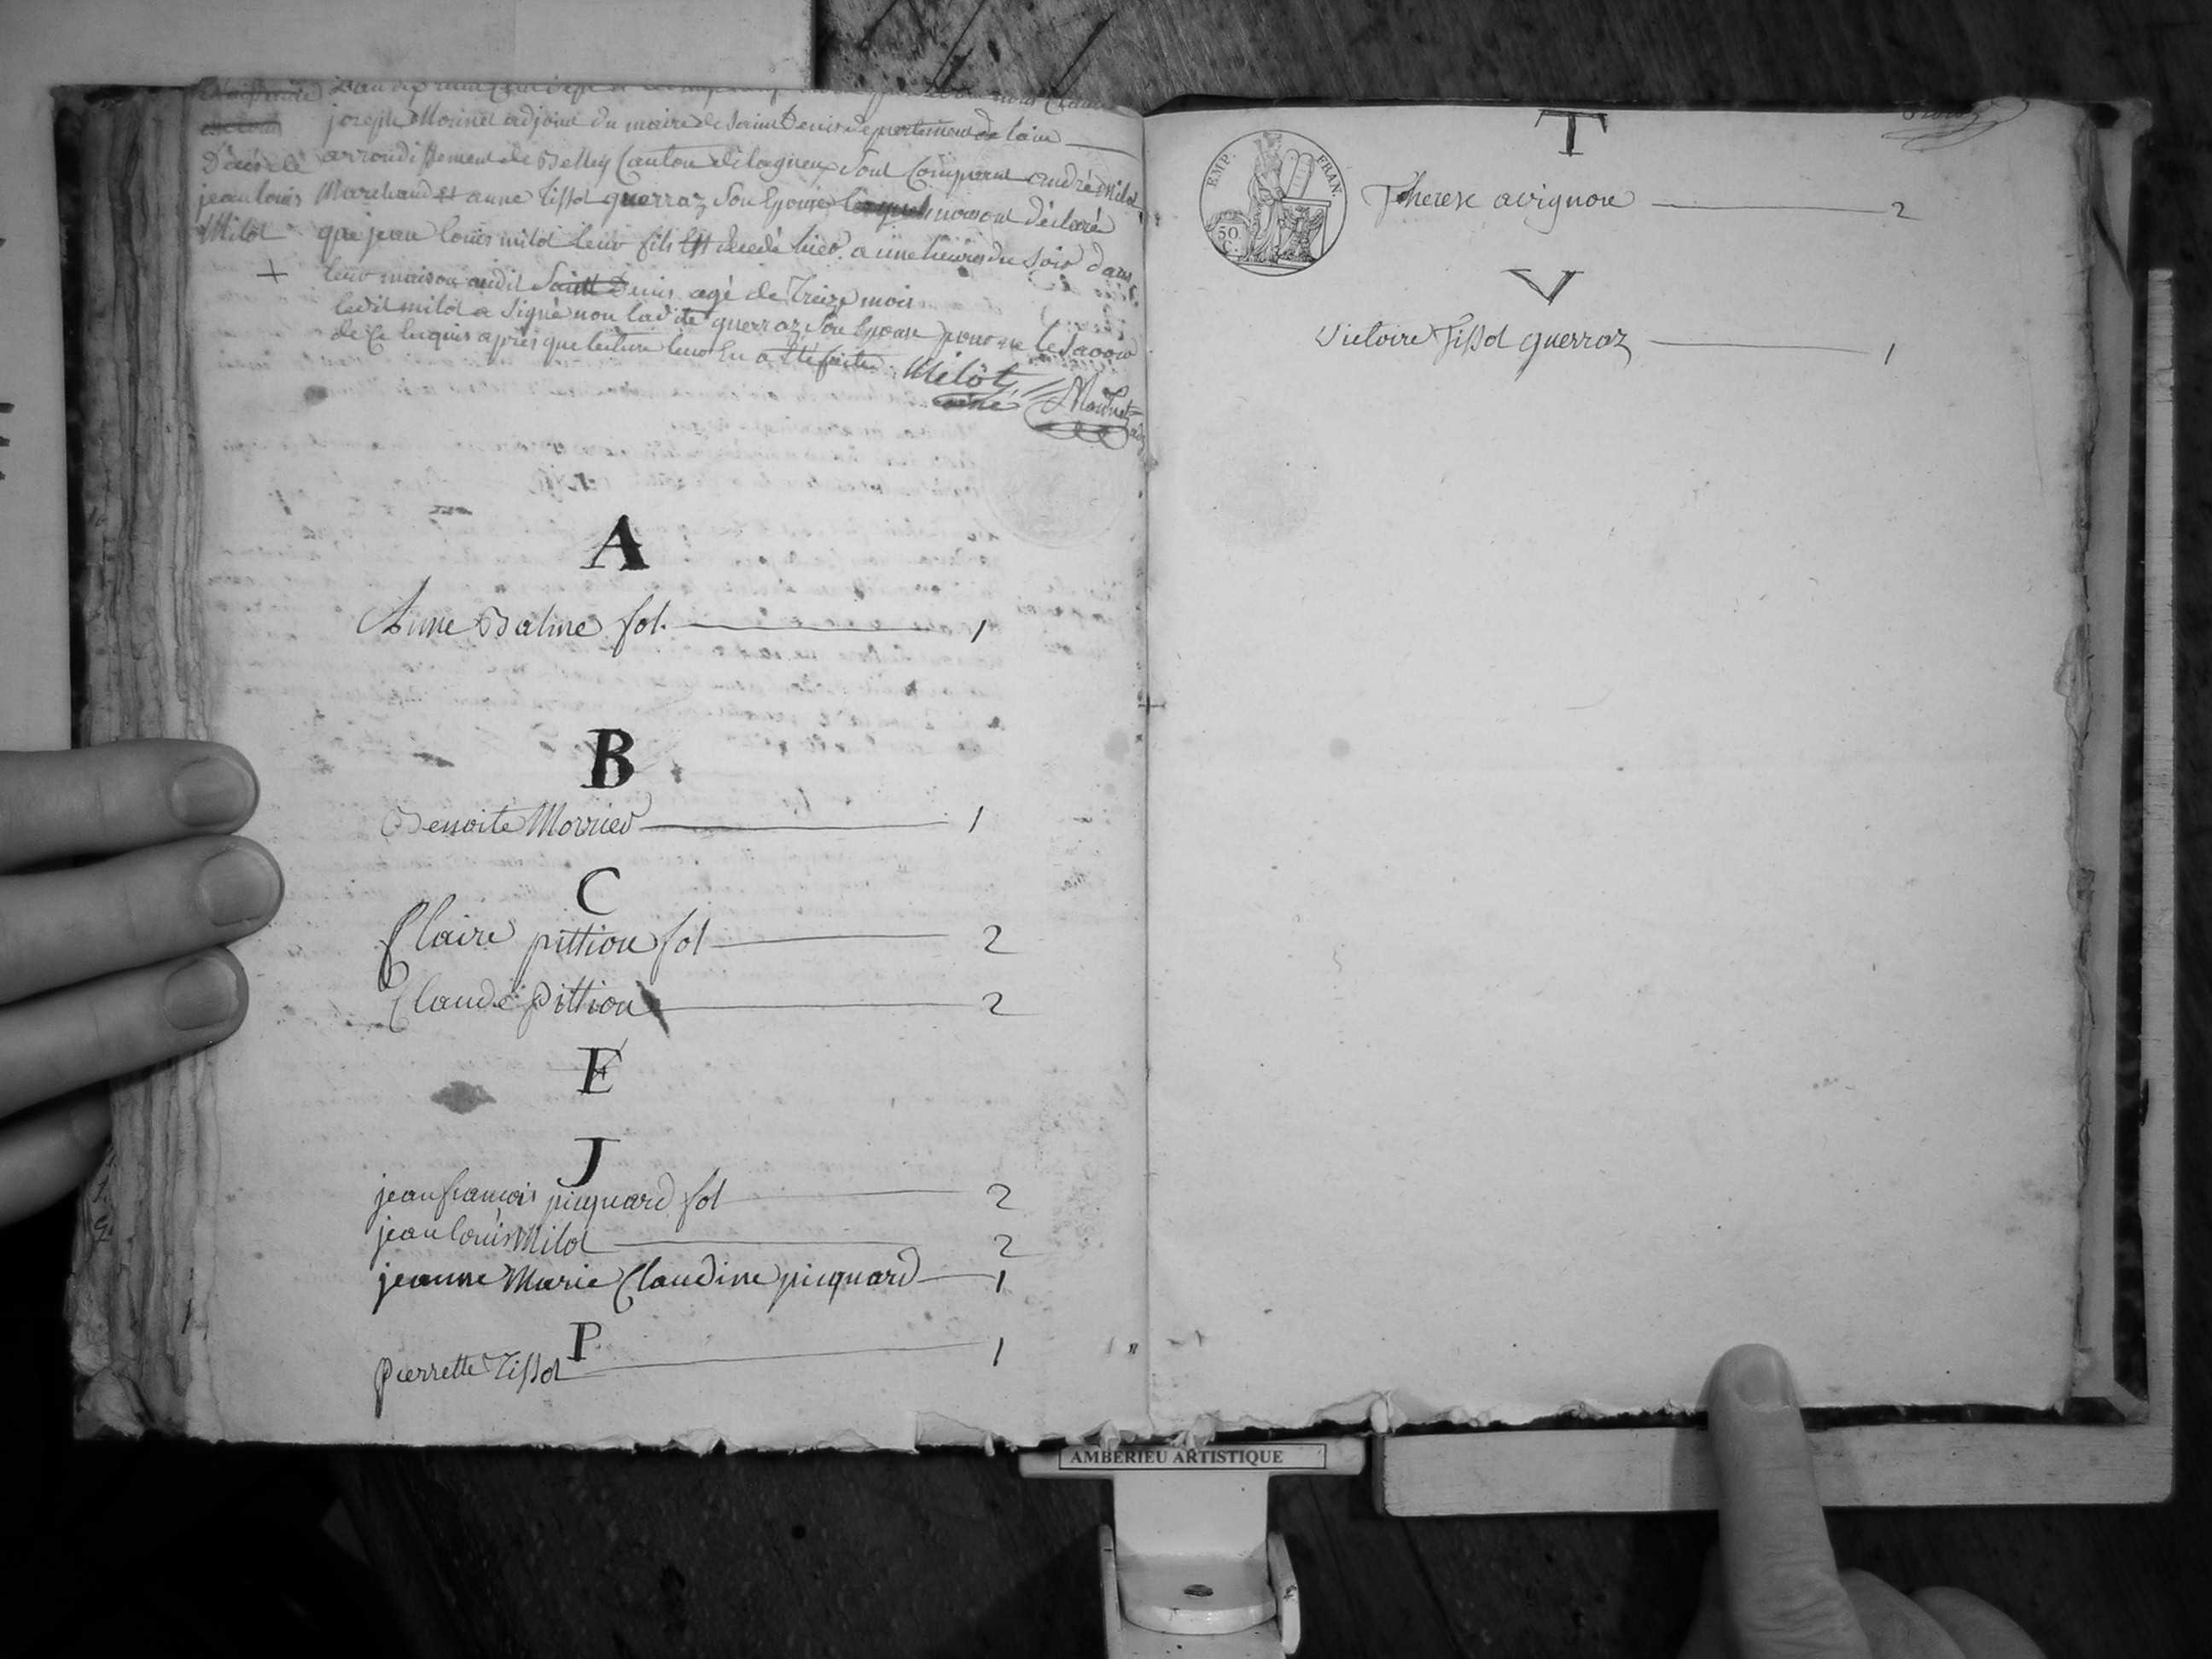 joseph Monnet adjoint du maire de Saint Denis departement de lain
Décés de
jean louis
Milot
arrondissement de Belley Canton de lagneux Sont Comparut andré Milot
Marchand et anne Tissot guerraz Son Epouse lesquels nous ont déclaré
que jean louis milot leur fils Est decedé hier a une heure du Soir dans
leur maison audit Saint Denis agé de Treize mois
ledit milot a Signé non ladite guerraz Son Epouse pour ne le Savoir
de Ce Enquis après que lecture leur En a Eté faite
Milot
Monnet
A
Anne Balme fol. 1
B
Benoite Morrier 1
C
Claire pittion fol 2
Claude Pittion 2
E
J
jean francois picquard fol 2
jean louis Milot 2
jeanne Marie Claudine picquard 1
P
Pierrette Tissot 1
T
EMP. FRAN.
50 C.
Therese avignon 2
V
Victoire Tissot guerraz 1
AMBERIEU ARTISTIQUE